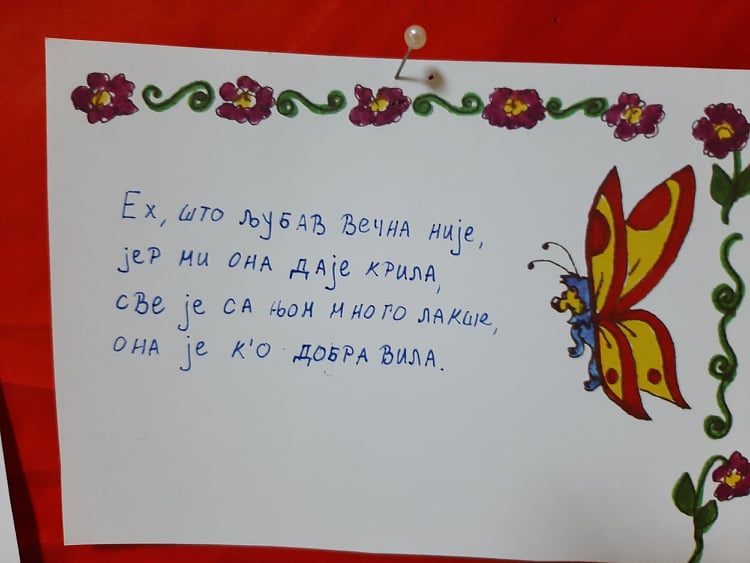 Ех, што љубав вечна није,
јер ми она даје крила,
све је са њом много лакше,
она је к'о добра вила.